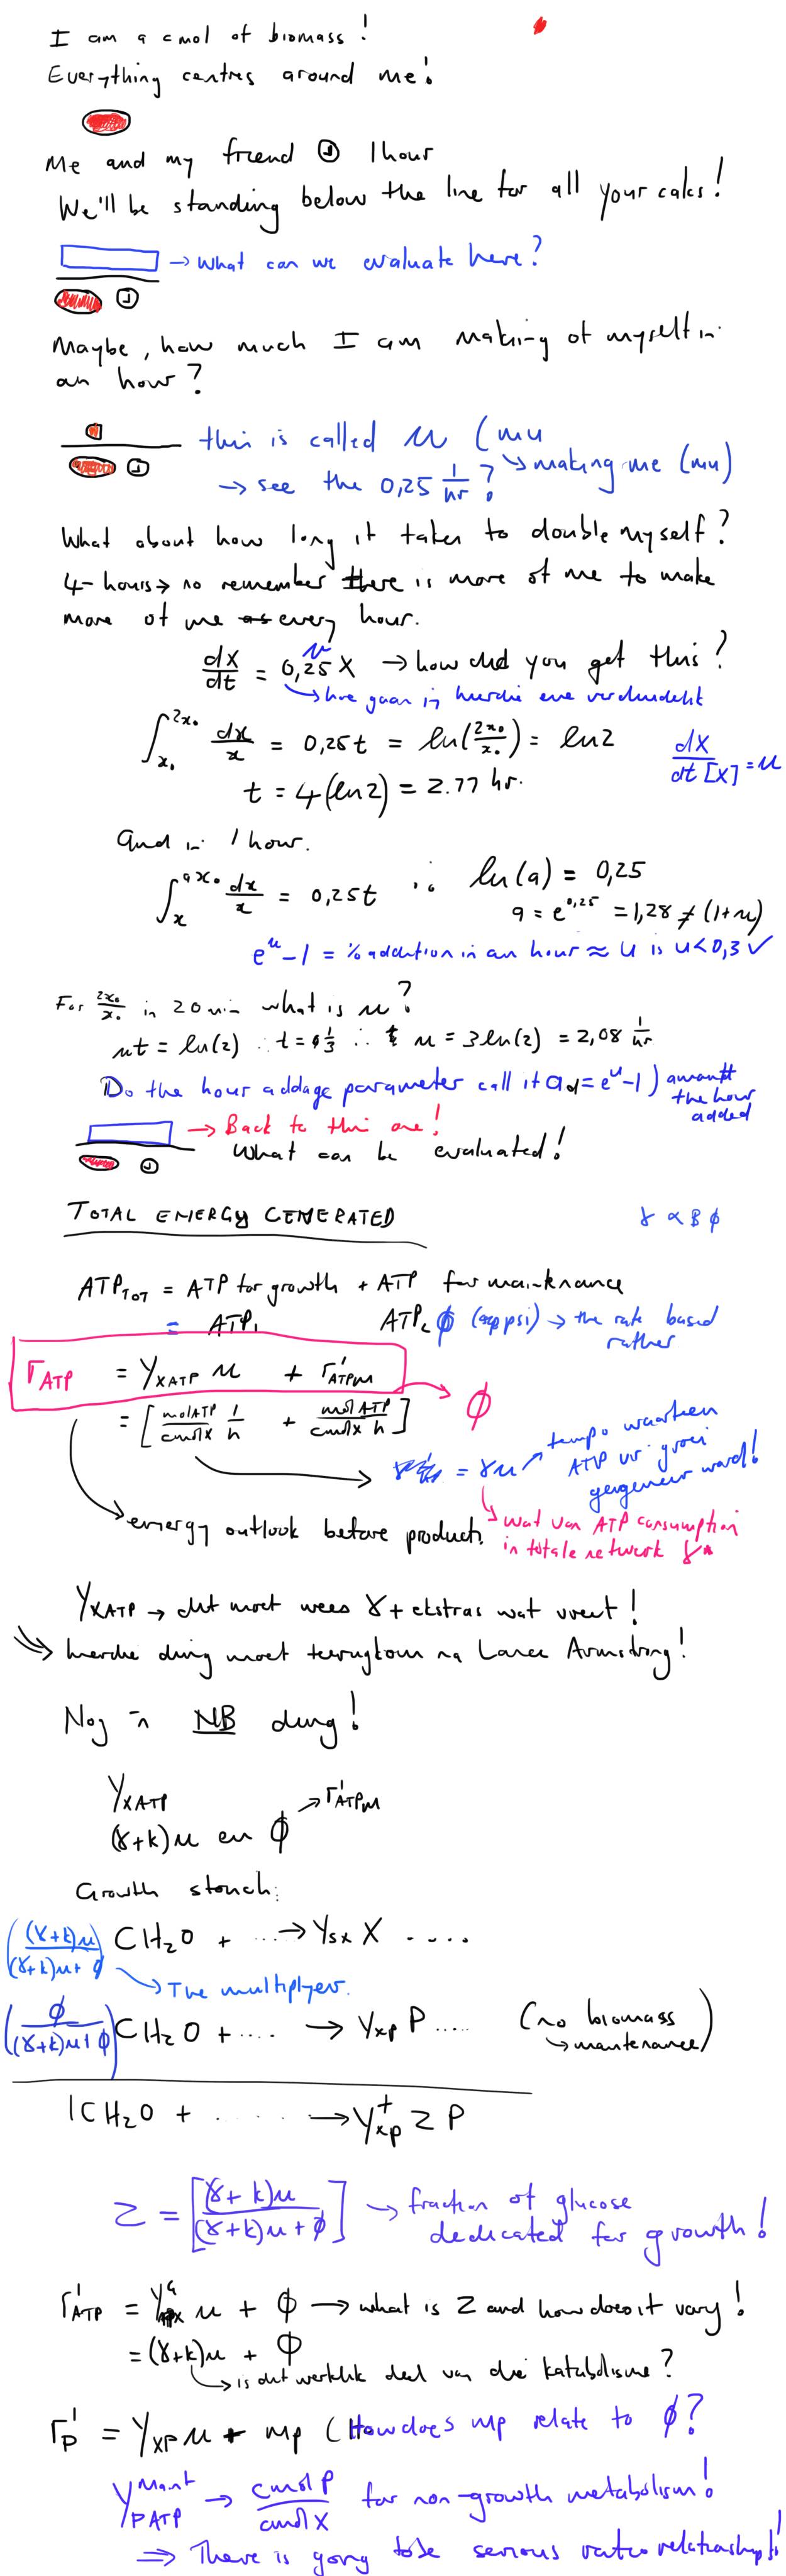 I am a cmol of biomass!
Everything centres around me!
Me and my friend 1 hour
We'll be standing below the line for all your calcs!
→ What can we evaluate here?
Maybe, how much I am making of myself in
an hour?
this is called μ (mu
↘ making me (mu)
→ see the 0,25 1/hr?
What about how long it takes to double myself?
4-hours → no remember there is more of me to make
more of me every hour.
dX/dt = 0,25 X → how did you get this?
μ
↳ hoe gaan jy hierdie ene verduidelik
∫_{x₀}^{2x₀} dx/x = 0,25t = ln(2x₀/x₀) = ln2
dX/dt [X] = μ
t = 4(ln2) = 2.77 hr.
and in 1 hour.
∫_{x}^{ax₀} dx/x = 0,25t ∴ ln(a) = 0,25
a = e^{0,25} = 1,28 ≠ (1+μ)
e^μ - 1 = % addition in an hour ≈ μ is μ<0,3 ✓
For 2x₀/x₀ in 20 min what is μ?
μt = ln(2) ∴ t = 1/3 ∴ μ = 3ln(2) = 2,08 1/hr
Do the hour addage parameter call it a_d = e^μ - 1) amount
the hour
added
→ Back to this one!
What can be evaluated!
TOTAL ENERGY GENERATED
γ ∝ β φ
ATP_TOT = ATP for growth + ATP for maintenance
= ATP₁ ATP₂ φ → the rate based
rather
r_ATP = Y_XATP μ + r'_ATPM
→ φ
= [molATP/cmolX 1/h + molATP/cmolX h]
= γμ
tempo waarteen
ATP vir groei
gegenereer word!
energy outlook before product.
↳ wat van ATP consumption
in totale netwerk γ
Y_XATP → dit moet wees γ + ekstras wat vreet!
hierdie ding moet terugkom na Lance Armstrong!
Nog 'n NB ding!
Y_XATP
→ r'_ATPM
(γ+k)μ en φ
Growth stoich:
((γ+k)μ/(γ+k)μ+φ) CH₂O + ... → Y_SX X ....
→ The multiplyer.
(φ/(γ+k)μ+φ) CH₂O + .... → Y_XP P ....
(no biomass
↳ maintenance)
1CH₂O + ...... → Y⁺_XP Z P
Z = [(γ+k)μ/(γ+k)μ+φ] → fraction of glucose
dedicated for growth!
r'_ATP = μ + φ → what is Z and how does it vary!
= (γ+k)μ + φ
↳ is dit werklik deel van die katabolisme?
r'_P = Y_XP μ + mp (How does mp relate to φ?
Y^Maint_PATP → cmolP/cmolX for non-growth metabolism!
⇒ There is going to be serious ratio relationship!